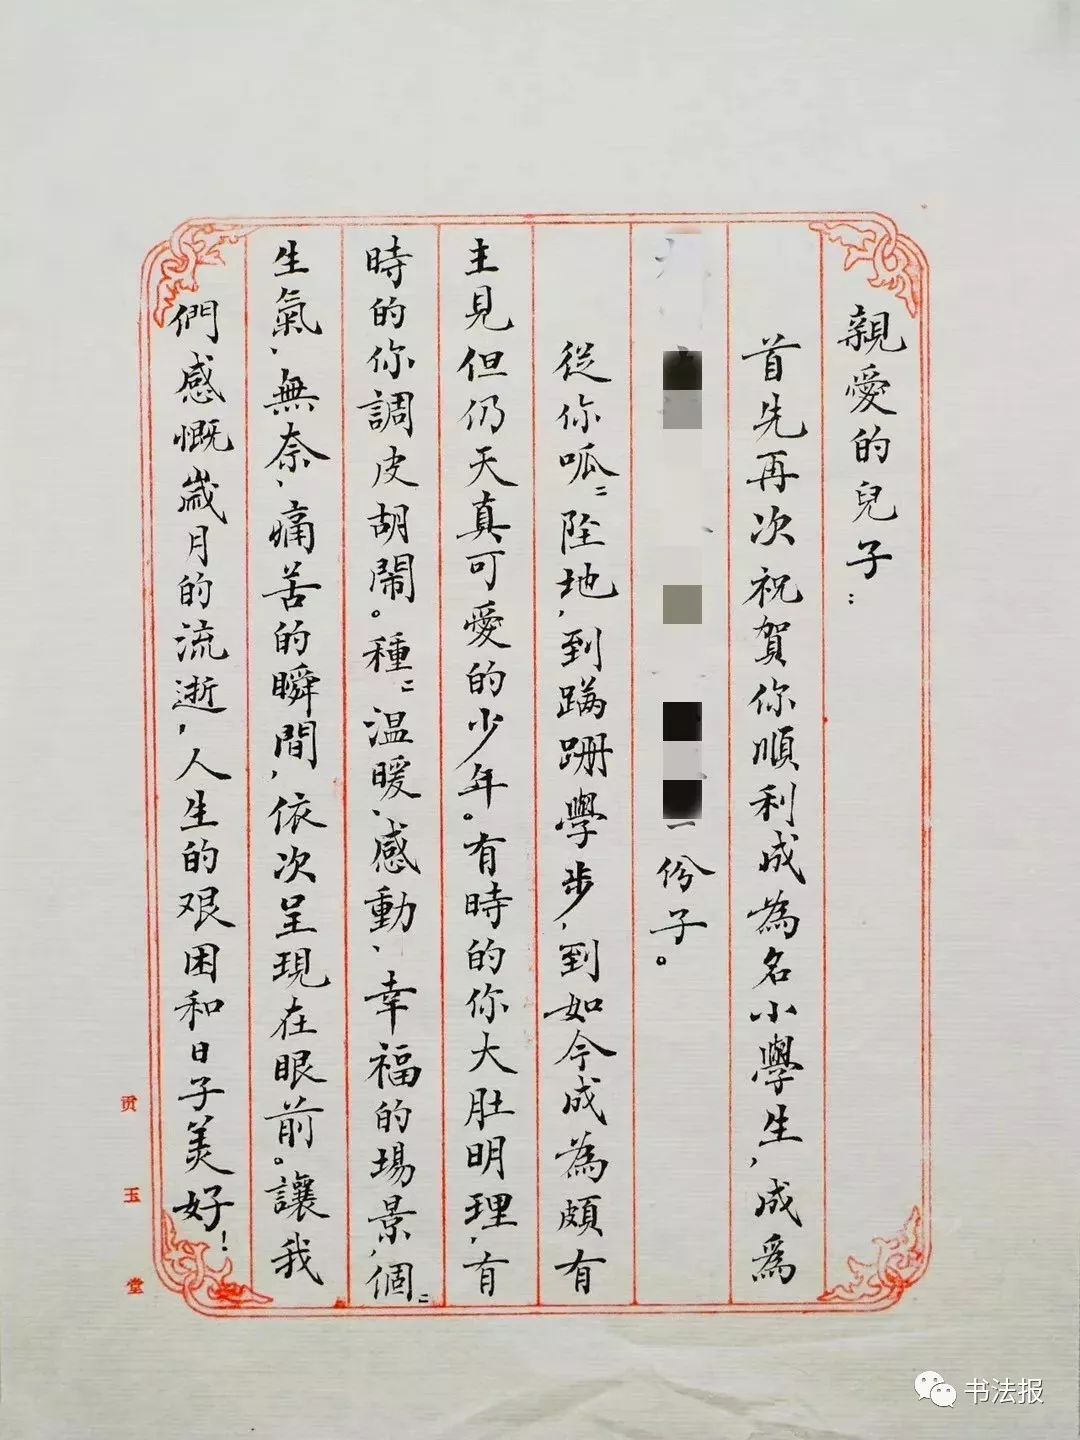 親愛的兒子：
首先再次祝賀你順利成為名小學生，成為
一份子。
從你呱〻墜地，到蹣跚學步，到如今成為頗有
主見但仍天真可愛的少年。有時的你大肚明理，有
時的你調皮胡鬧。種〻溫暖、感動、幸福的場景，個〻
生氣、無奈、痛苦的瞬間，依次呈現在眼前。讓我
們感慨歲月的流逝，人生的艰困和日子美好！
贡玉堂
书法报